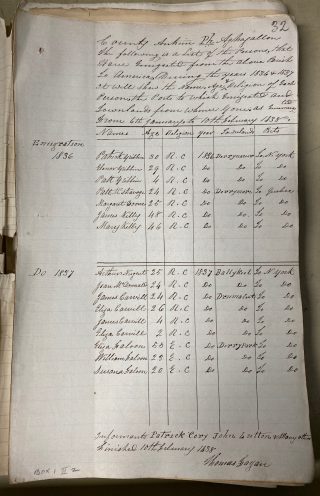 32
County Antrim Ph Aghagallon
The following is a List of the Persons that
Have Emigrated from the above Parish
To America During the years 1836 & 1837
as will shew the Names Age & Religion of Each
Person the Port to which Emigrated and the
Townlands from whence Gone as
from 6th January to 10th February 1838
Names Age Religion year Townlands Ports
Emigration 1836 Patrick 30 R.C 1836 To N. york
29 R.C Do Do To Do
Patt 24 R.C Do Do To Do
Patt 24 R.C Do To Quebec
Margaret 25 R.C Do Do To Do
James Kelly 48 R.C Do Do To Do
Mary Kelly 46 R.C Do Do To Do
Do 1837 Arthur 25 R.C 1837 To N. york
24 R.C Do Do To Do
James Carvill 24 R.C Do To Do
Eliza Carvill 26 R.C Do Do To Do
James Carvill 4 R.C Do Do To Do
Eliza Carvill 2 R.C Do Do To Do
Eliza 50 E.C Do To Do
William 23 E.C Do Do To Do
Susana 20 E.C Do Do To Do
Informants Patrick Cory John & Many others
Finished 10th February 1838
Thomas Fagan
BOX 1 II 2